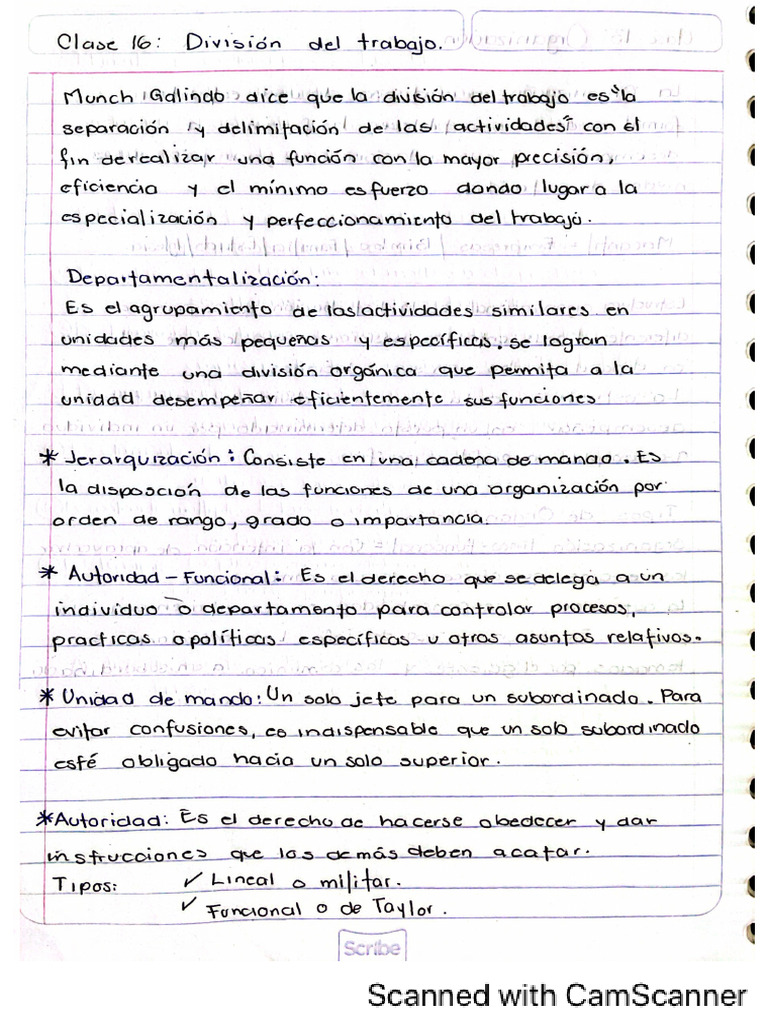 Clase 16: División del trabajo.
Munch Galindo dice que la división del trabajo es la
separación y delimitación de las actividades con el
fin de realizar una función con la mayor precisión,
eficiencia y el mínimo esfuerzo dando lugar a la
especialización y perfeccionamiento del trabajo.
Departamentalización:
Es el agrupamiento de las actividades similares en
unidades más pequeñas y específicas. se logran
mediante una división orgánica que permita a la
unidad desempeñar eficientemente sus funciones
* Jerarquización: Consiste en una cadena de mando. Es
la disposción de las funciones de una organización por
orden de rango, grado o importancia.
* Autoridad - Funcional: Es el derecho que se delega a un
individuo o departamento para controlar procesos,
practicas o políticas específicas u otros asuntos relativos.
* Unidad de mando: Un solo jefe para un subordinado. Para
evitar confusiones, es indispensable que un solo subordinado
esté obligado hacia un solo superior.
* Autoridad: Es el derecho de hacerse obedecer y dar
instrucciones que los demás deben acatar.
Tipos: ✓ Lineal o militar.
✓ Funcional o de Taylor.
Scribe
Scanned with CamScanner